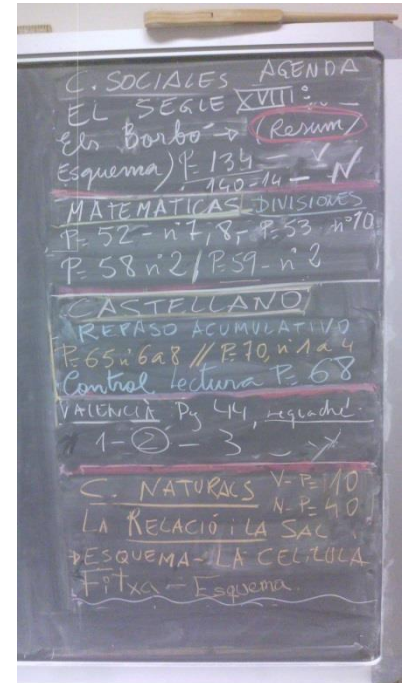 C. SOCIALES AGENDA
EL SEGLE XVIII:
Els Borbó → (Resum)
Esquema) P= 134 -
140-14 - N
MATEMATICAS-DIVISIONES
P= 52 - nº 7, 8, - P= 53 nº 10
P= 58 nº 2 / P=59 - nº 2
CASTELLANO
REPASO ACUMULATIVO
P=65 nº 6 a 8 // P=70, nº 1 a 4
Control lectura P= 68
VALENCIÀ Pg 44,
1 - 2 - 3
C. NATURALS V- P= 10
N- P= 40
LA RELACIÓ i LA SAL
→ESQUEMA - LA CEL·LULA
Fitxa - Esquema.